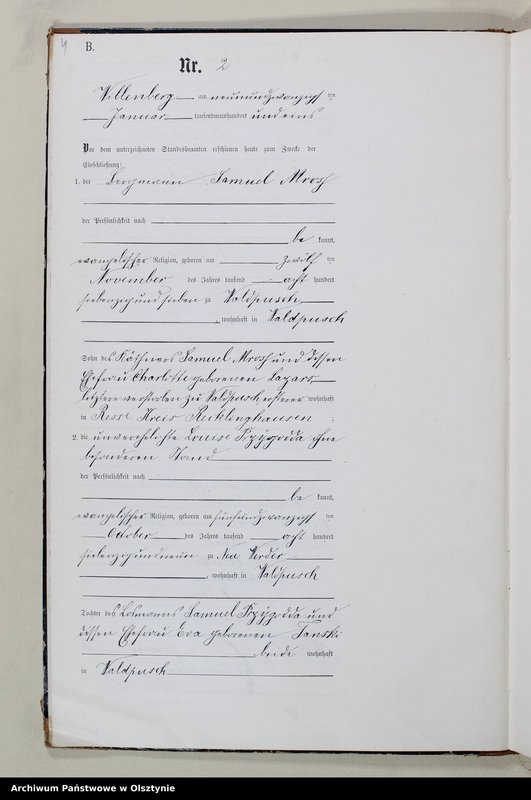 4 B.
Nr. 2
Willenberg am neunundzwanzigsten
Januar tausendneunhundert und eins
Vor dem unterzeichneten Standesbeamten erschienen heute zum Zwecke der
Eheschließung:
1. der Bergmann Samuel Mrosz
der Persönlichkeit nach
be kannt,
evangelischer Religion, geboren am zwölf ten
November des Jahres tausend acht hundert
siebenzig und sieben zu Waldpusch
, wohnhaft in Waldpusch
Sohn des Käthners Samuel Mrosz und dessen
Ehefrau Charlotte geborenen
letztere verstorben zu Waldpusch, ersterer wohnhaft
in Resse Kreis Recklinghausen :
2. die unverehelichte Louise Przygodda ohne
besonderen Stand
der Persönlichkeit nach
be kannt,
evangelischer Religion, geboren am fünfundzwanzigsten
October des Jahres tausend acht hundert
siebenzig und neun zu Neu Werder
, wohnhaft in Waldpusch
Tochter des Losmannes Samuel Przygodda und
dessen Ehefrau Eva geborenen Janski
beide wohnhaft
in Waldpusch
Archiwum Państwowe w Olsztynie